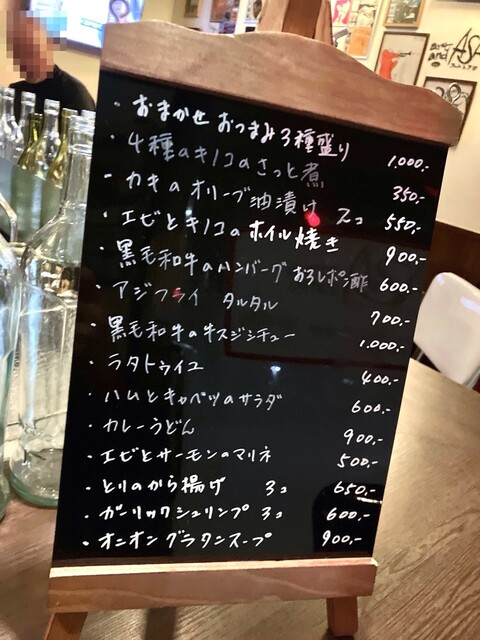 ・おまかせ おつまみ3種盛り 1,000.-
・4種のキノコのさっと煮 350.-
・カキのオリーブ油漬け 2コ 550.-
・エビとキノコのホイル焼き 900.-
・黒毛和牛のハンバーグ おろしポン酢 600.-
・アジフライ タルタル 700.-
・黒毛和牛の牛スジシチュー 1,000.-
・ラタトゥイユ 400.-
・ハムとキャベツのサラダ 600.-
・カレーうどん 900.-
・エビとサーモンのマリネ 500.-
・とりのから揚げ 3コ 650.-
・ガーリックシュリンプ 3コ 600.-
・オニオングラタンスープ 900.-